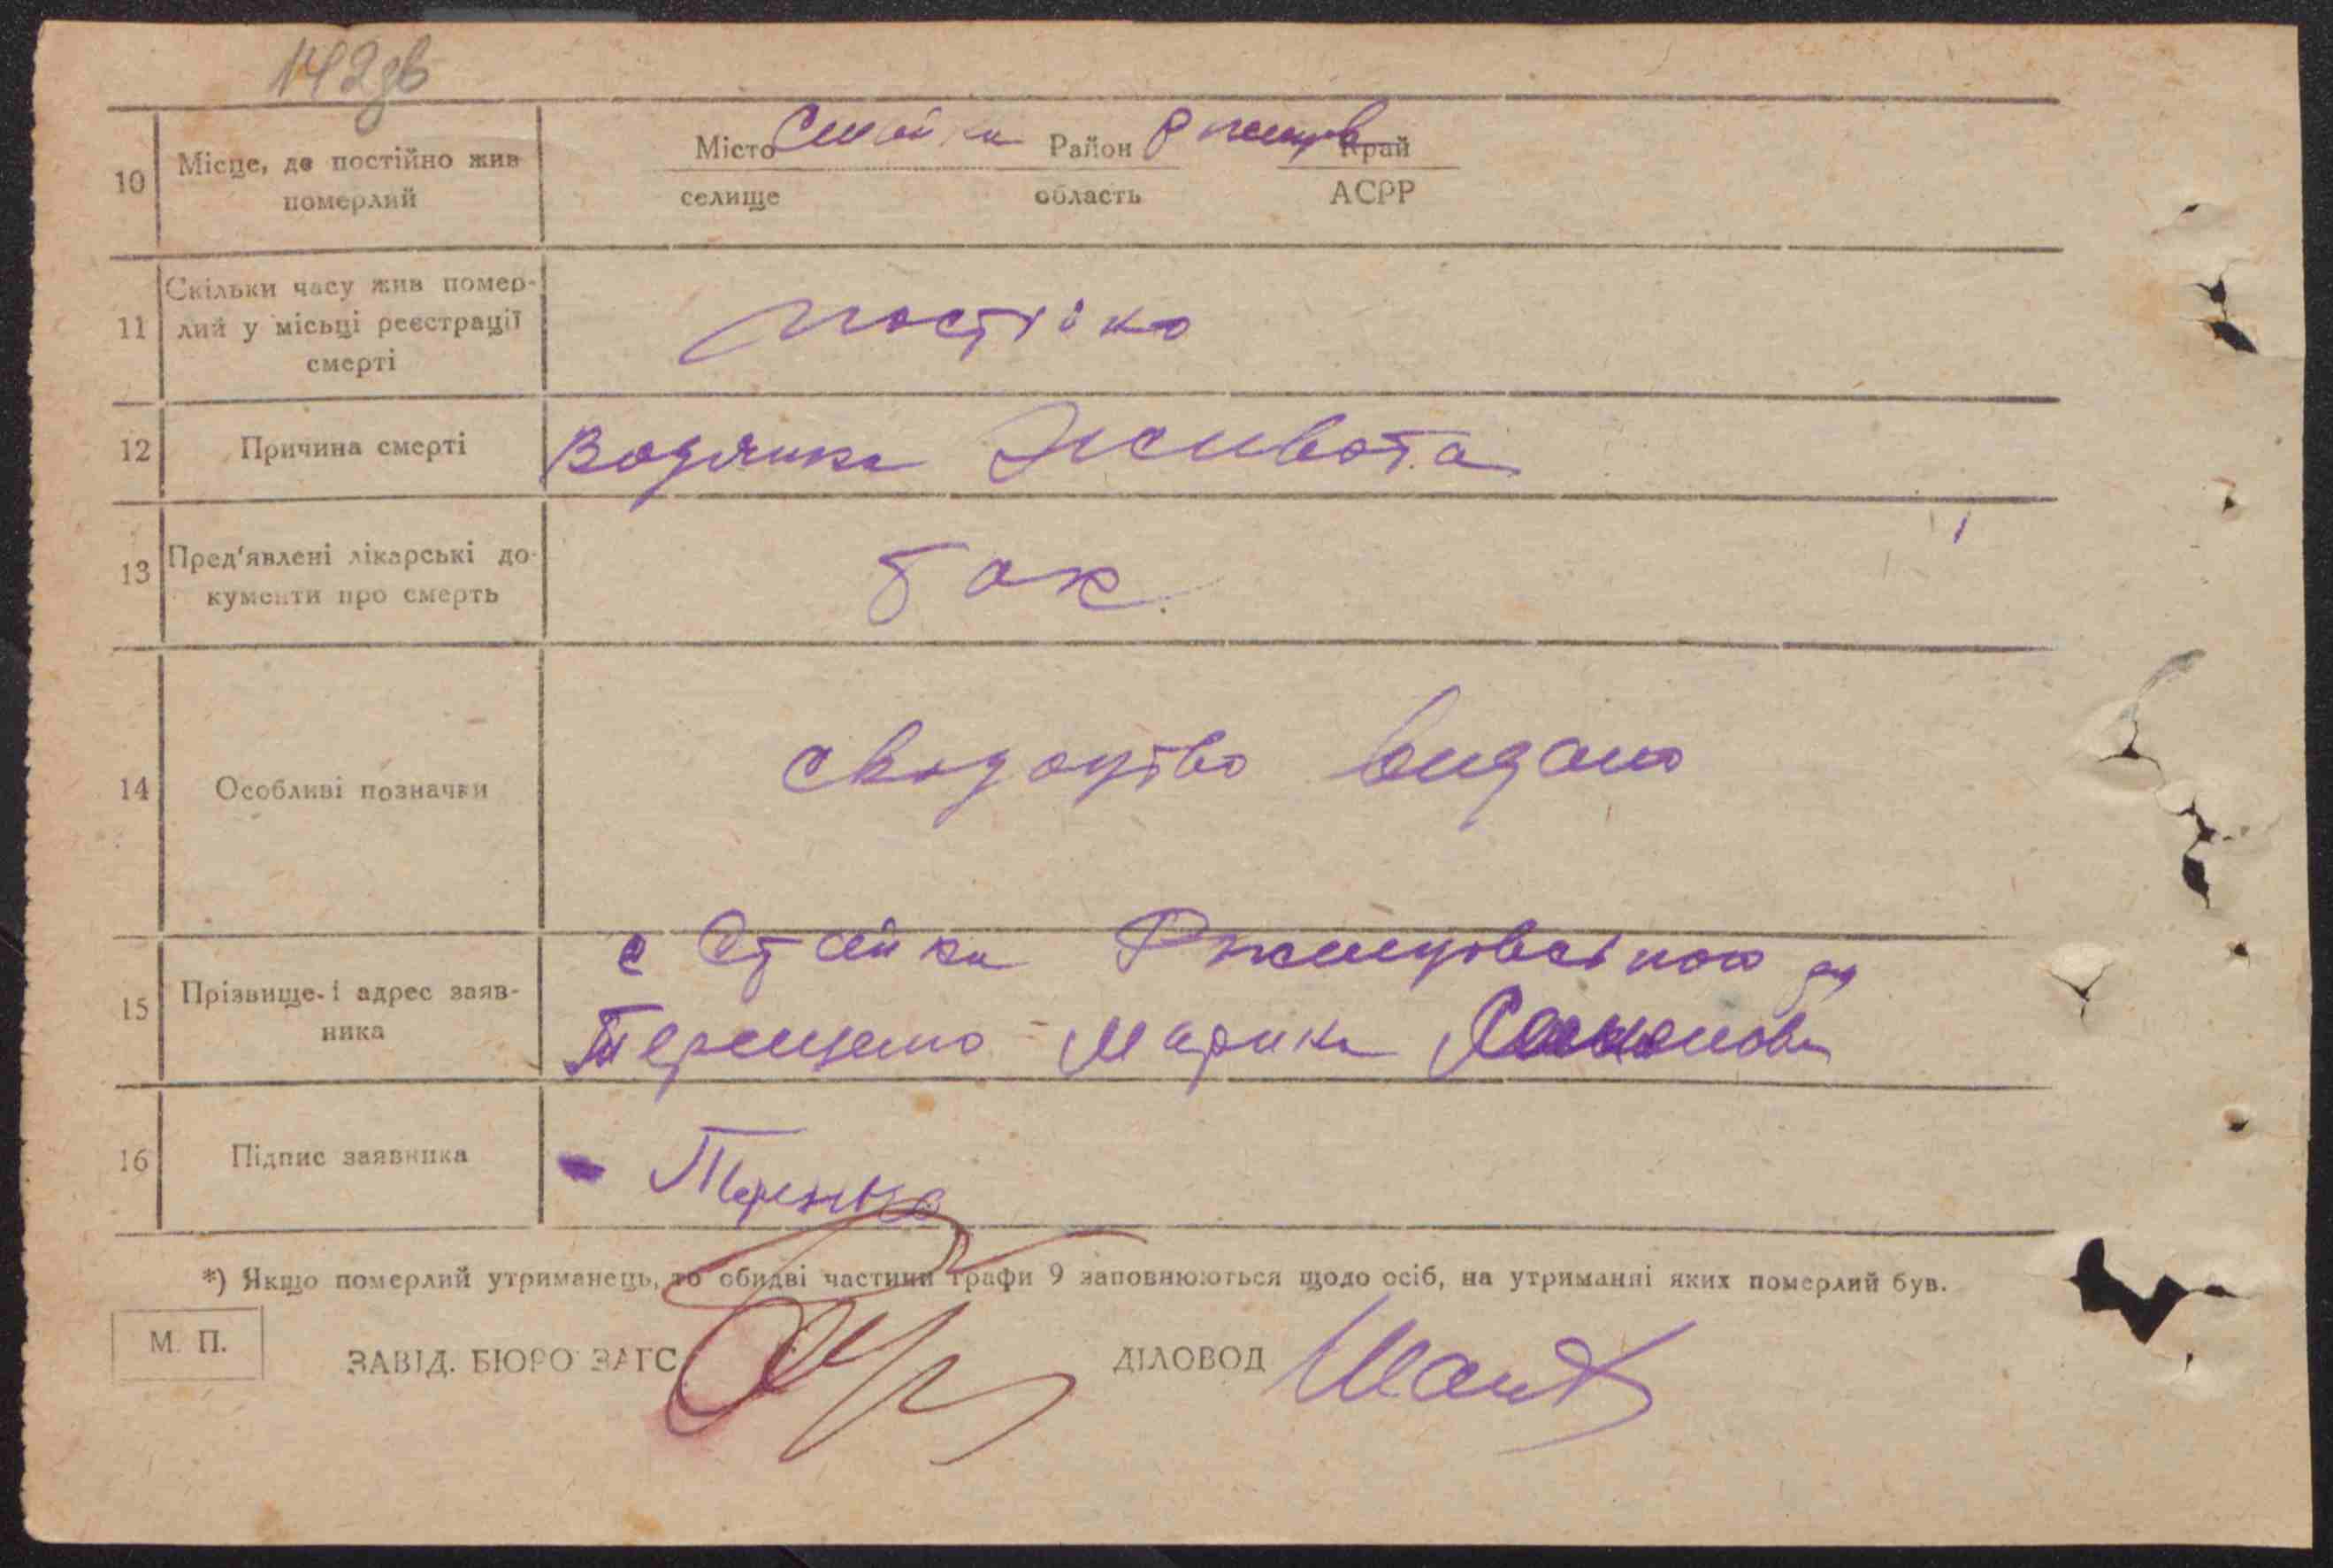 142зв
10 Місце, де постійно жив померлий
Місто Стайки Район Ржищів Край
селище область АСРР
11 Скільки часу жив помер-
лий у місьці реєстрації
смерті
постіко
12 Причина смерті Водянка Живота
13 Пред'явлені лікарські до-
кументи про смерть
14 Особливі позначки
свідоцтво видано
с Стайки Ржищівського
15 Прізвище і адрес заяв-
ника
Терещенко Марика
16 Підпис заявника
*) Якщо померлий утриманець, то обидві частини графи 9 заповнюються щодо осіб, на утриманні яких померлий був.
М. П. ЗАВІД. БЮРО ЗАГС ДІЛОВОД